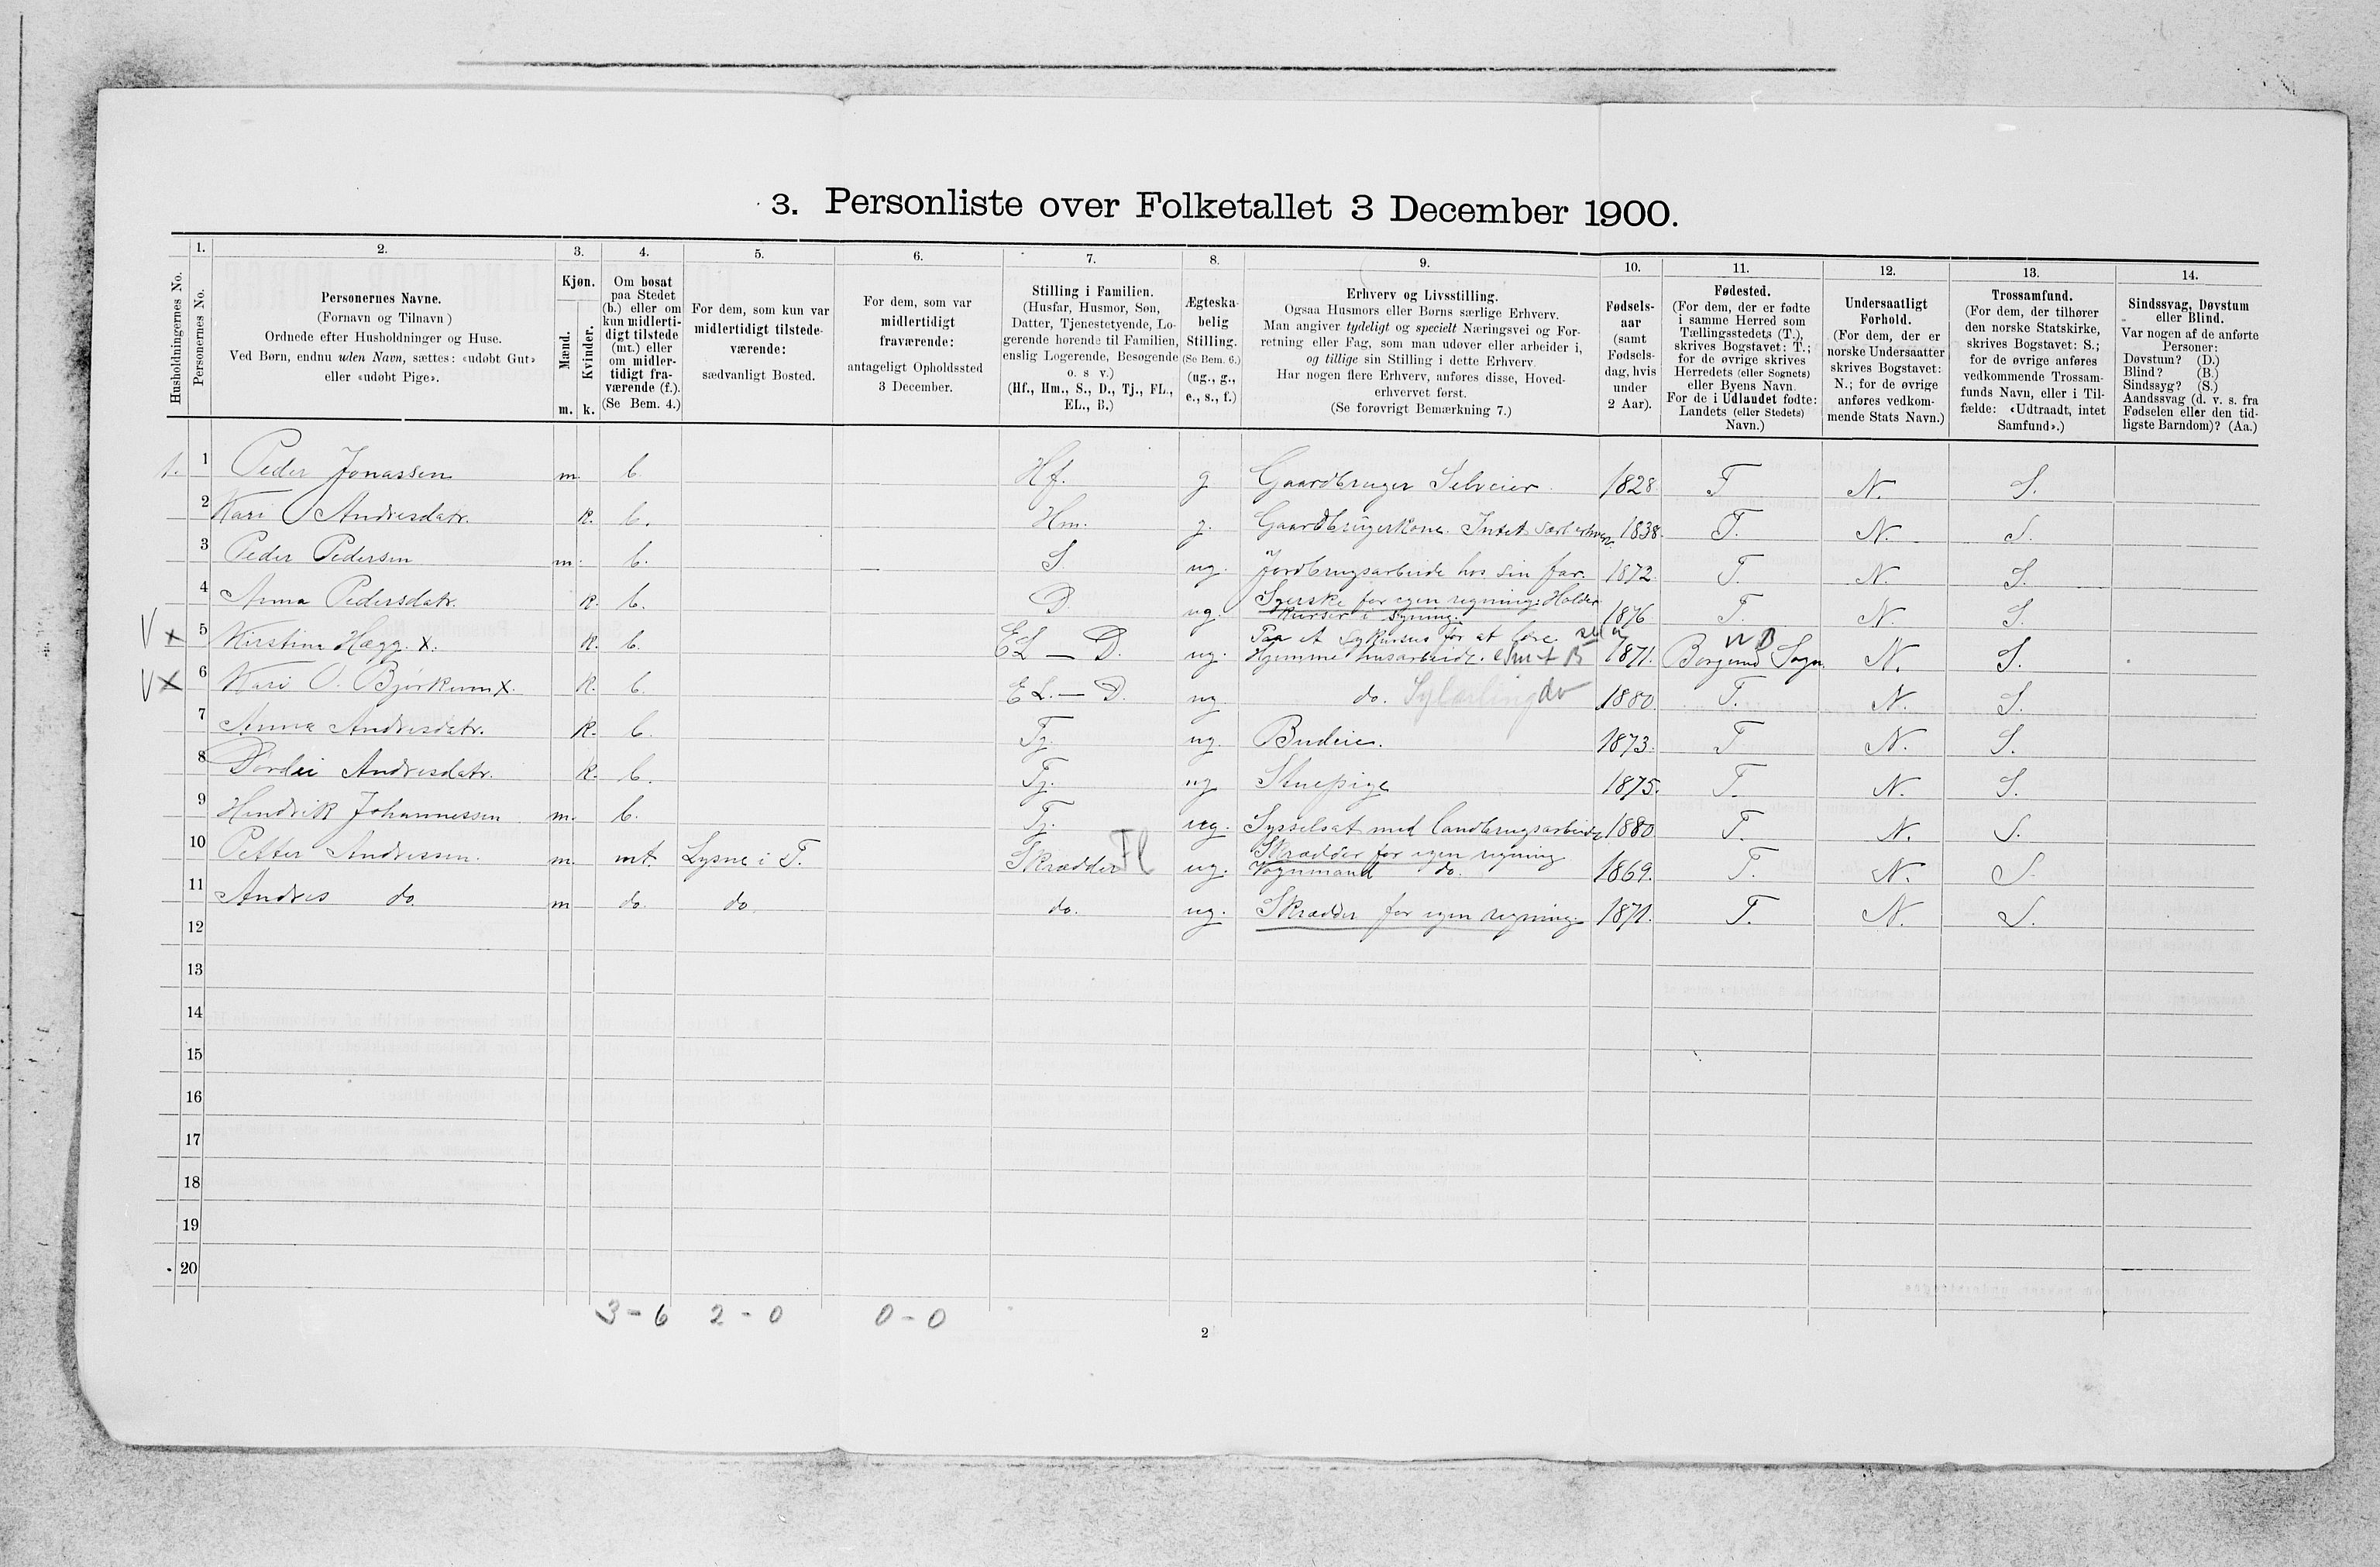 3. Personliste over Folketallet 3 December 1900.
1. 2. 3. 4. 5. 6. 7. 8. 9. 10. 11. 12. 13. 14.
Husholdningernes No.
Personernes No.
Personernes Navne.
(Fornavn og Tilnavn)
Ordnede efter Husholdninger og Huse.
Ved Børn, endnu uden Navn, sættes: «udøbt Gut»
eller «udøbt Pige».
Kjøn.
Mænd.
Kvinder.
m. k.
Om bosat
paa Stedet
(b.) eller om
kun midlerti-
digt tilstede
(mt.) eller
om midler-
tidigt fra-
værende (f.).
(Se Bem. 4.)
For dem, som kun var
midlertidigt tilstede-
værende:
sædvanligt Bosted.
For dem, som var
midlertidigt
fraværende:
antageligt Opholdssted
3 December.
Stilling i Familien.
(Husfar, Husmor, Søn,
Datter, Tjenestetyende, Lo-
gerende hørende til Familien,
enslig Logerende, Besøgende
o. s v.)
(Hf., Hm., S., D., Tj., FL.,
EL., B.)
Ægteska-
belig
Stilling.
(Se Bem. 6.)
(ug., g.,
e., s., f.)
Erhverv og Livsstilling.
Ogsaa Husmors eller Børns særlige Erhverv.
Man angiver tydeligt og specielt Næringsvei og For-
retning eller Fag, som man udøver eller arbeider i,
og tillige sin Stilling i dette Erhverv.
Har nogen flere Erhverv, anføres disse, Hoved-
erhvervet først.
(Se forøvrigt Bemærkning 7.)
Fødsels-
aar
(samt
Fødsels-
dag, hvis
under
2 Aar).
Fødested.
(For dem, der er fødte
i samme Herred som
Tællingsstedets (T.),
skrives Bogstavet: T.;
for de øvrige skrives
Herredets (eller Sognets)
eller Byens Navn.
For de i Udlandet fødte:
Landets (eller Stedets)
Navn.)
Undersaatligt
Forhold.
(For dem, der er
norske Undersaatter
skrives Bogstavet:
N.; for de øvrige
anføres vedkom-
mende Stats Navn.)
Trossamfund.
(For dem, der tilhører
den norske Statskirke,
skrives Bogstavet: S.;
for de øvrige anføres
vedkommende Trossam-
funds Navn, eller i Til-
fælde: «Udtraadt, intet
Samfund».)
Sindssvag, Døvstum
eller Blind.
Var nogen af de anførte
Personer:
Døvstum? (D.)
Blind? (B.)
Sindssyg? (S.)
Aandssvag (d. v. s. fra
Fødselen eller den tid-
ligste Barndom)? (Aa.)
1. 1 Peder Jonassen m. b. Hf. g Gaardbruger Selveier. 1828. T N. S.
2 Kari Andresdatr. k. b. Hm. g. Gaardbrugerkone. Intet særl erhverv. 1838. T. N. S.
3 Peder Pedersen m. b. S. ug. Jordbrugsarbeide hos sin far. 1872. T. N. S.
4 Anna Pedersdatr. k. b. D. ug. Syerske for egen regning. Holder
kurser i syning. 1876. T. N. S.
V x 5 Kirstine Hægg. x. k. b. EL — D. ug. Paa et sykursus for at lære
Hjemme husarbeide. 1871. Borgund Sogn N. S.
V x 6 Kari O. Bjørkum x. k. b. EL. — D. ug do. Sylærling do 1880. T. N. S.
7 Anna Andresdatr. k. b. Tj. ug. Budeie. 1873. T N. S.
8 Dordei Andresdatr. k. b. Tj. ug Stuepige 1875. T. N. S.
9 Hendrik Johannessen m. b. Tj. ug. Sysselsat med landbrugsarbeide 1880. T. N. S.
10 Petter Andressen. m. mt. Lysne i T. Skrædder Fl ug. Skrædder for egen regning
Vognmand do. 1869. T. N. S.
11 Andres do. m do. do. do. ug. Skrædder for egen regning. 1871. T. N. S.
12
13
14
15
16
17
18
19
20
3 - 6 2 - 0 0 - 0
2